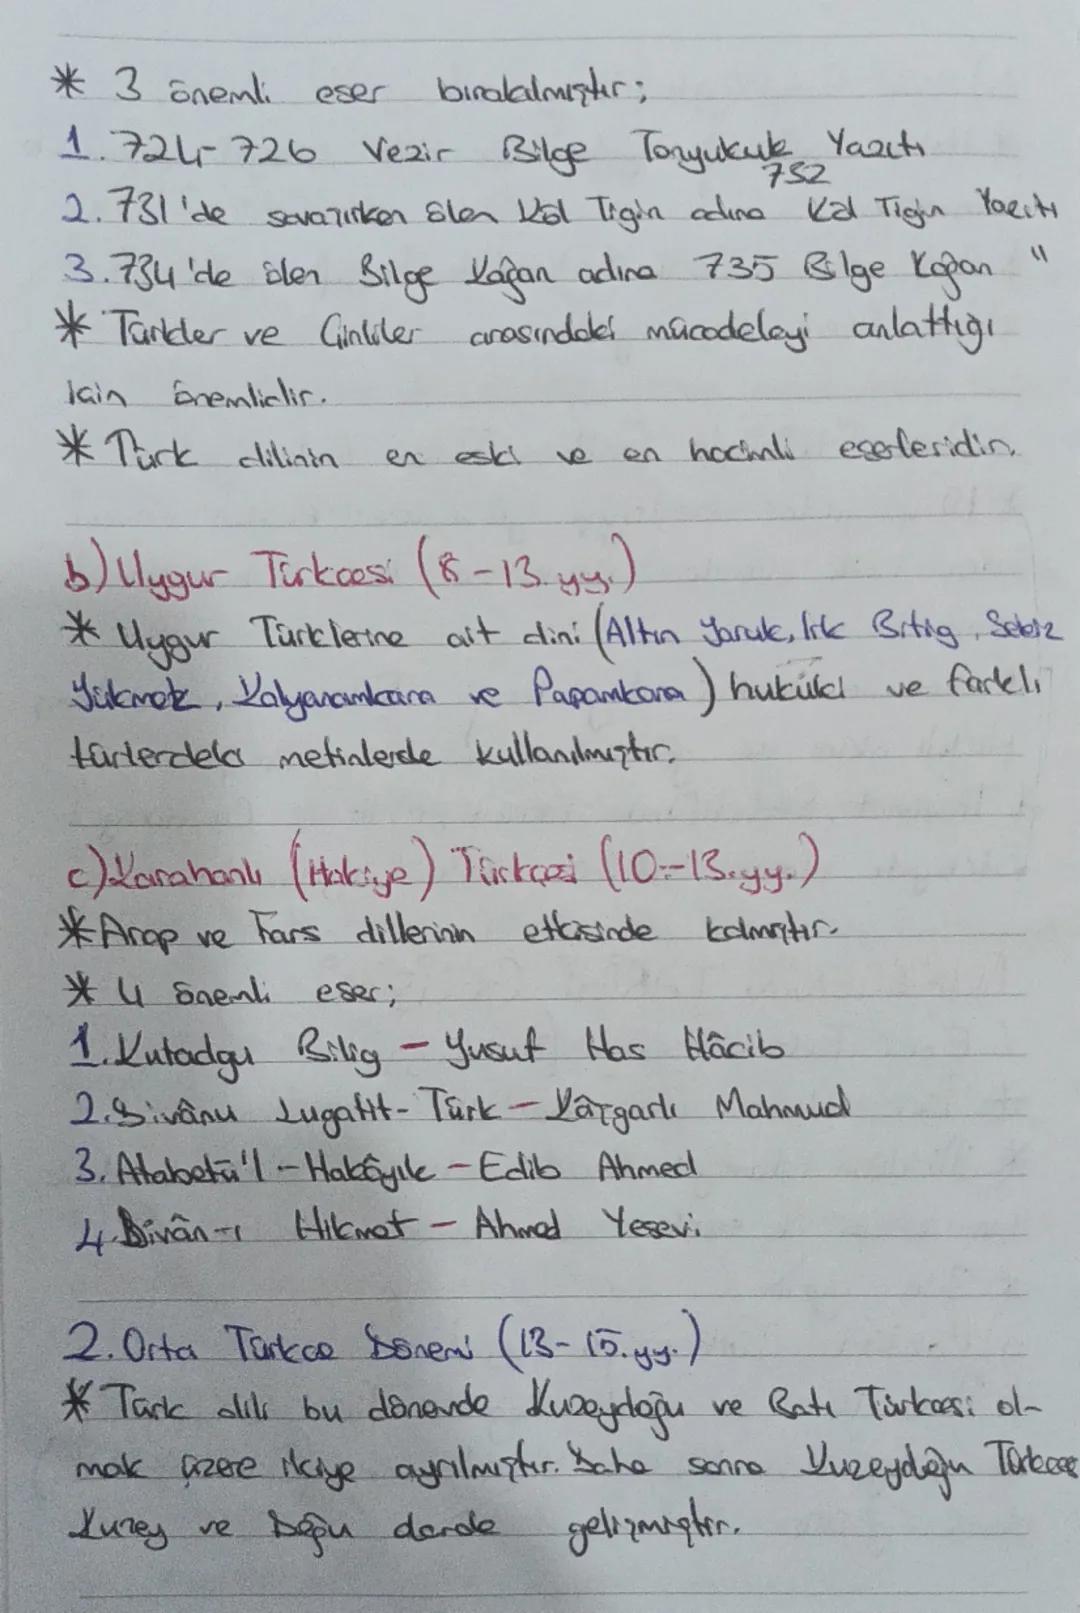 * 3 önemli eser bırakılmıştır;
1. 724-726 Vezir Bilge Tonyukuk Yazıtı
732
2. 731'de savaşırken ölen Köl Tigin adına Köl Tigin Yazıtı
3. 734'de ölen Bilge Kağan adına 735 Bilge Kağan "
* Türkler ve Çinliler arasındaki mücadeleyi anlattığı
için önemlidir.
* Türk dilinin en eski ve en hacimli eserleridir.
b) Uygur Türkçesi (8-13.yy.)
* Uygur Türklerine ait dini (Altın Yaruk, Irk Bitig, Sekiz
Yükmek, Kalyanamkara ve Papamkara) hukuki ve farklı
türlerdeki metinlerde kullanılmıştır.
c) Karahanlı (Hakiye) Türkçesi (10-13.yy.)
* Arap ve Fars dillerinin etkisinde kalmıştır.
* 4 önemli eser;
1. Kutadgu Bilig - Yusuf Has Hâcib
2. Divânu Lugatit-Türk - Kâşgarlı Mahmud
3. Atabetü'l-Hakâyık - Edib Ahmed
4. Divân-ı Hikmet - Ahmed Yesevi
2. Orta Türkçe Dönemi (13-15.yy.)
* Türk dili bu dönemde Kuzeydoğu ve Batı Türkçesi ol-
mak üzere ikiye ayrılmıştır. Daha sonra Kuzeydoğu Türkçesi
Kuzey ve Doğu darde gelişmiştir.